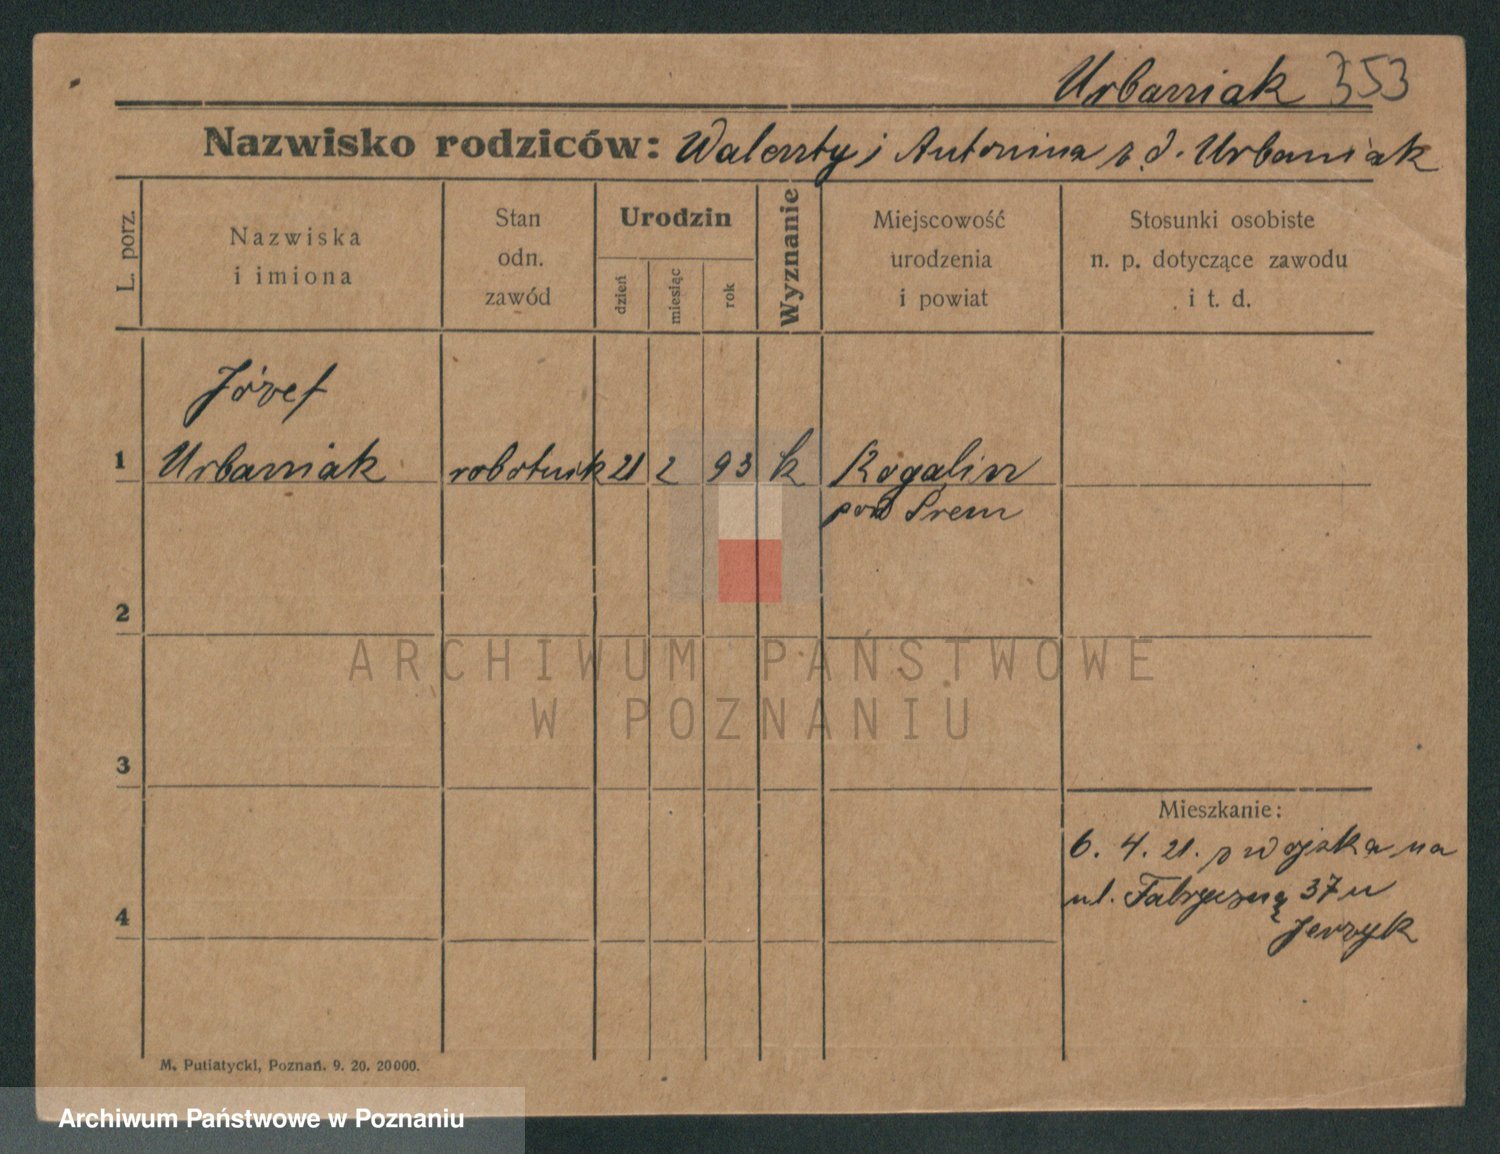 Urbaniak 353
Nazwisko rodziców: Walenty i Antonina z d. Urbaniak
L. porz.
Nazwiska
i imiona
Stan
odn.
zawód
Urodzin
dzień
miesiąc
rok
Wyznanie
Miejscowość
urodzenia
i powiat
Stosunki osobiste
n. p. dotyczące zawodu
i t. d.
Józef
1 Urbaniak robotnik 21 2 93 k Rogalin
pow Śrem
2
3
Mieszkanie:
6. 4. 21. z wojska na
ul. Fabryczną 37 u
4
Jerzyk
M. Putiatycki, Poznań. 9. 20. 20000.
ARCHIWUM PAŃSTWOWE
W POZNANIU
Archiwum Państwowe w Poznaniu